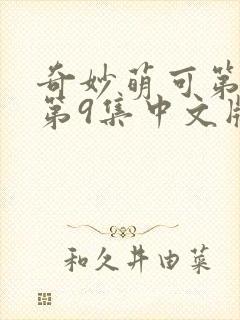 奇妙萌可第
第9集中文版
和久井由菜